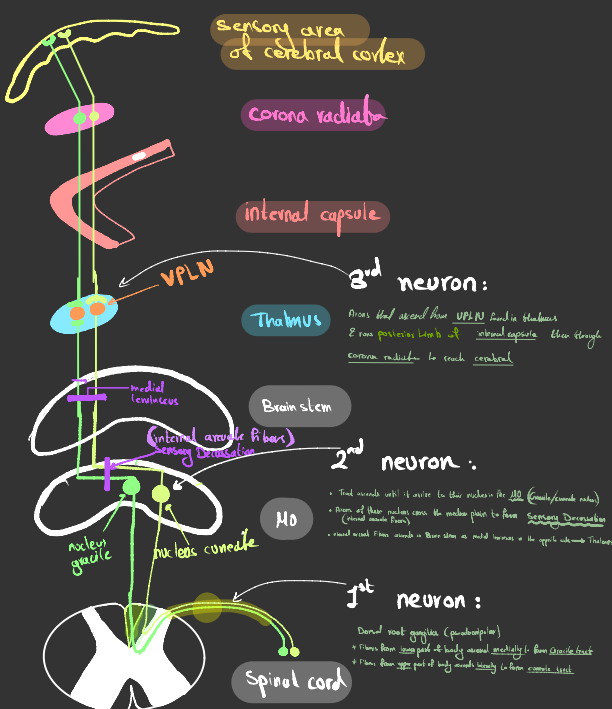 sensory area
of cerebral cortex
corona radiata
internal capsule
VPLN
3rd neuron:
Axons that ascend from VPLN found in thalamus
& runs posterior limb of internal capsule then through
corona radiata to reach cerebral
Thalmus
medial
lemniscus
Brain stem
(internal arcuate fibers)
Sensory Decussation
2nd neuron:
• Tract ascends until it arrive to their nucleus in the MO (gracile/cuneate nucleus)
• Axons of these nucleus cross the median plain to form Sensory Decussation
(internal arcuate fibers)
• internal arcuate fibers ascends in Brain stem as medial lemniscus in the opposite side → Thalamus
Mo
nucleus
gracile
nucleus cuneate
1st neuron:
Dorsal root ganglia (pseudounipolar)
+ Fibres from lower part of body ascend medially to form Gracile tract
+ Fibres from upper part of body ascends laterally to form cuneate tract
Spinal cord